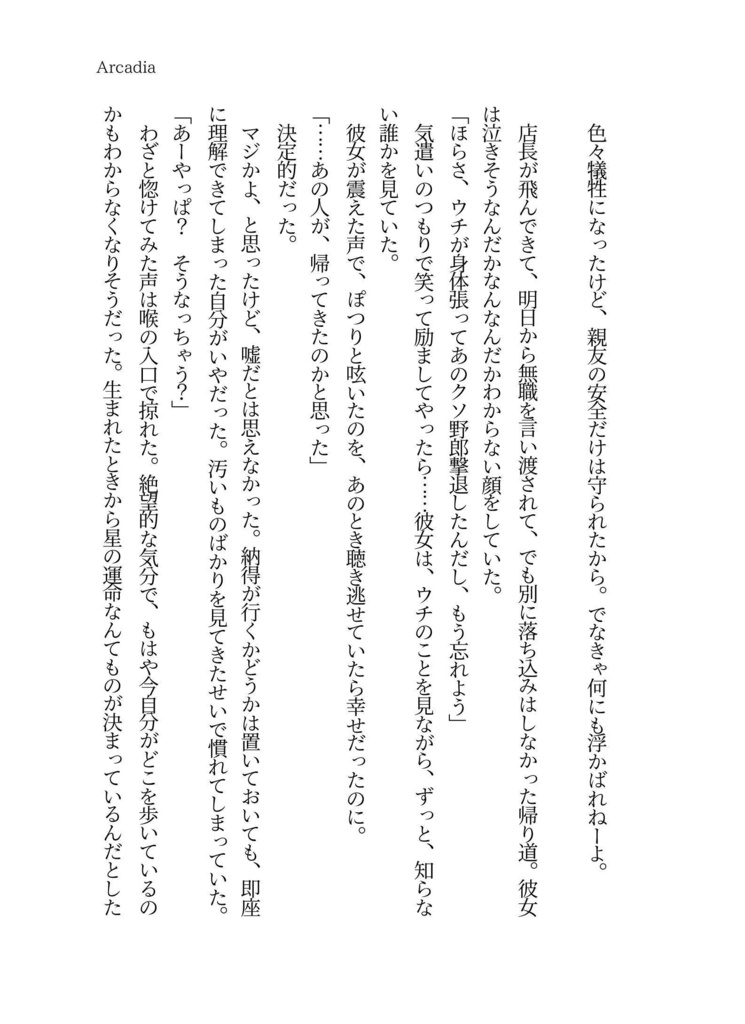 Arcadia
色々犠牲になったけど、親友の安全だけは守られたから。でなきゃ何にも浮かばれねーよ。
店長が飛んできて、明日から無職を言い渡されて、でも別に落ち込みはしなかった帰り道。彼女
は泣きそうなんだかなんなんだかわからない顔をしていた。
「ほらさ、ウチが身体張ってあのクソ野郎撃退したんだし、もう忘れよう」
気遣いのつもりで笑って励ましてやったら……彼女は、ウチのことを見ながら、ずっと、知らな
い誰かを見ていた。
彼女が震えた声で、ぽつりと呟いたのを、あのとき聴き逃せていたら幸せだったのに。
「……あの人が、帰ってきたのかと思った」
決定的だった。
マジかよ、と思ったけど、嘘だとは思えなかった。納得が行くかどうかは置いておいても、即座
に理解できてしまった自分がいやだった。汚いものばかりを見てきたせいで慣れてしまっていた。
「あーやっぱ？　そうなっちゃう？」
わざと惚けてみた声は喉の入口で掠れた。絶望的な気分で、もはや今自分がどこを歩いているの
かもわからなくなりそうだった。生まれたときから星の運命なんてものが決まっているんだとした